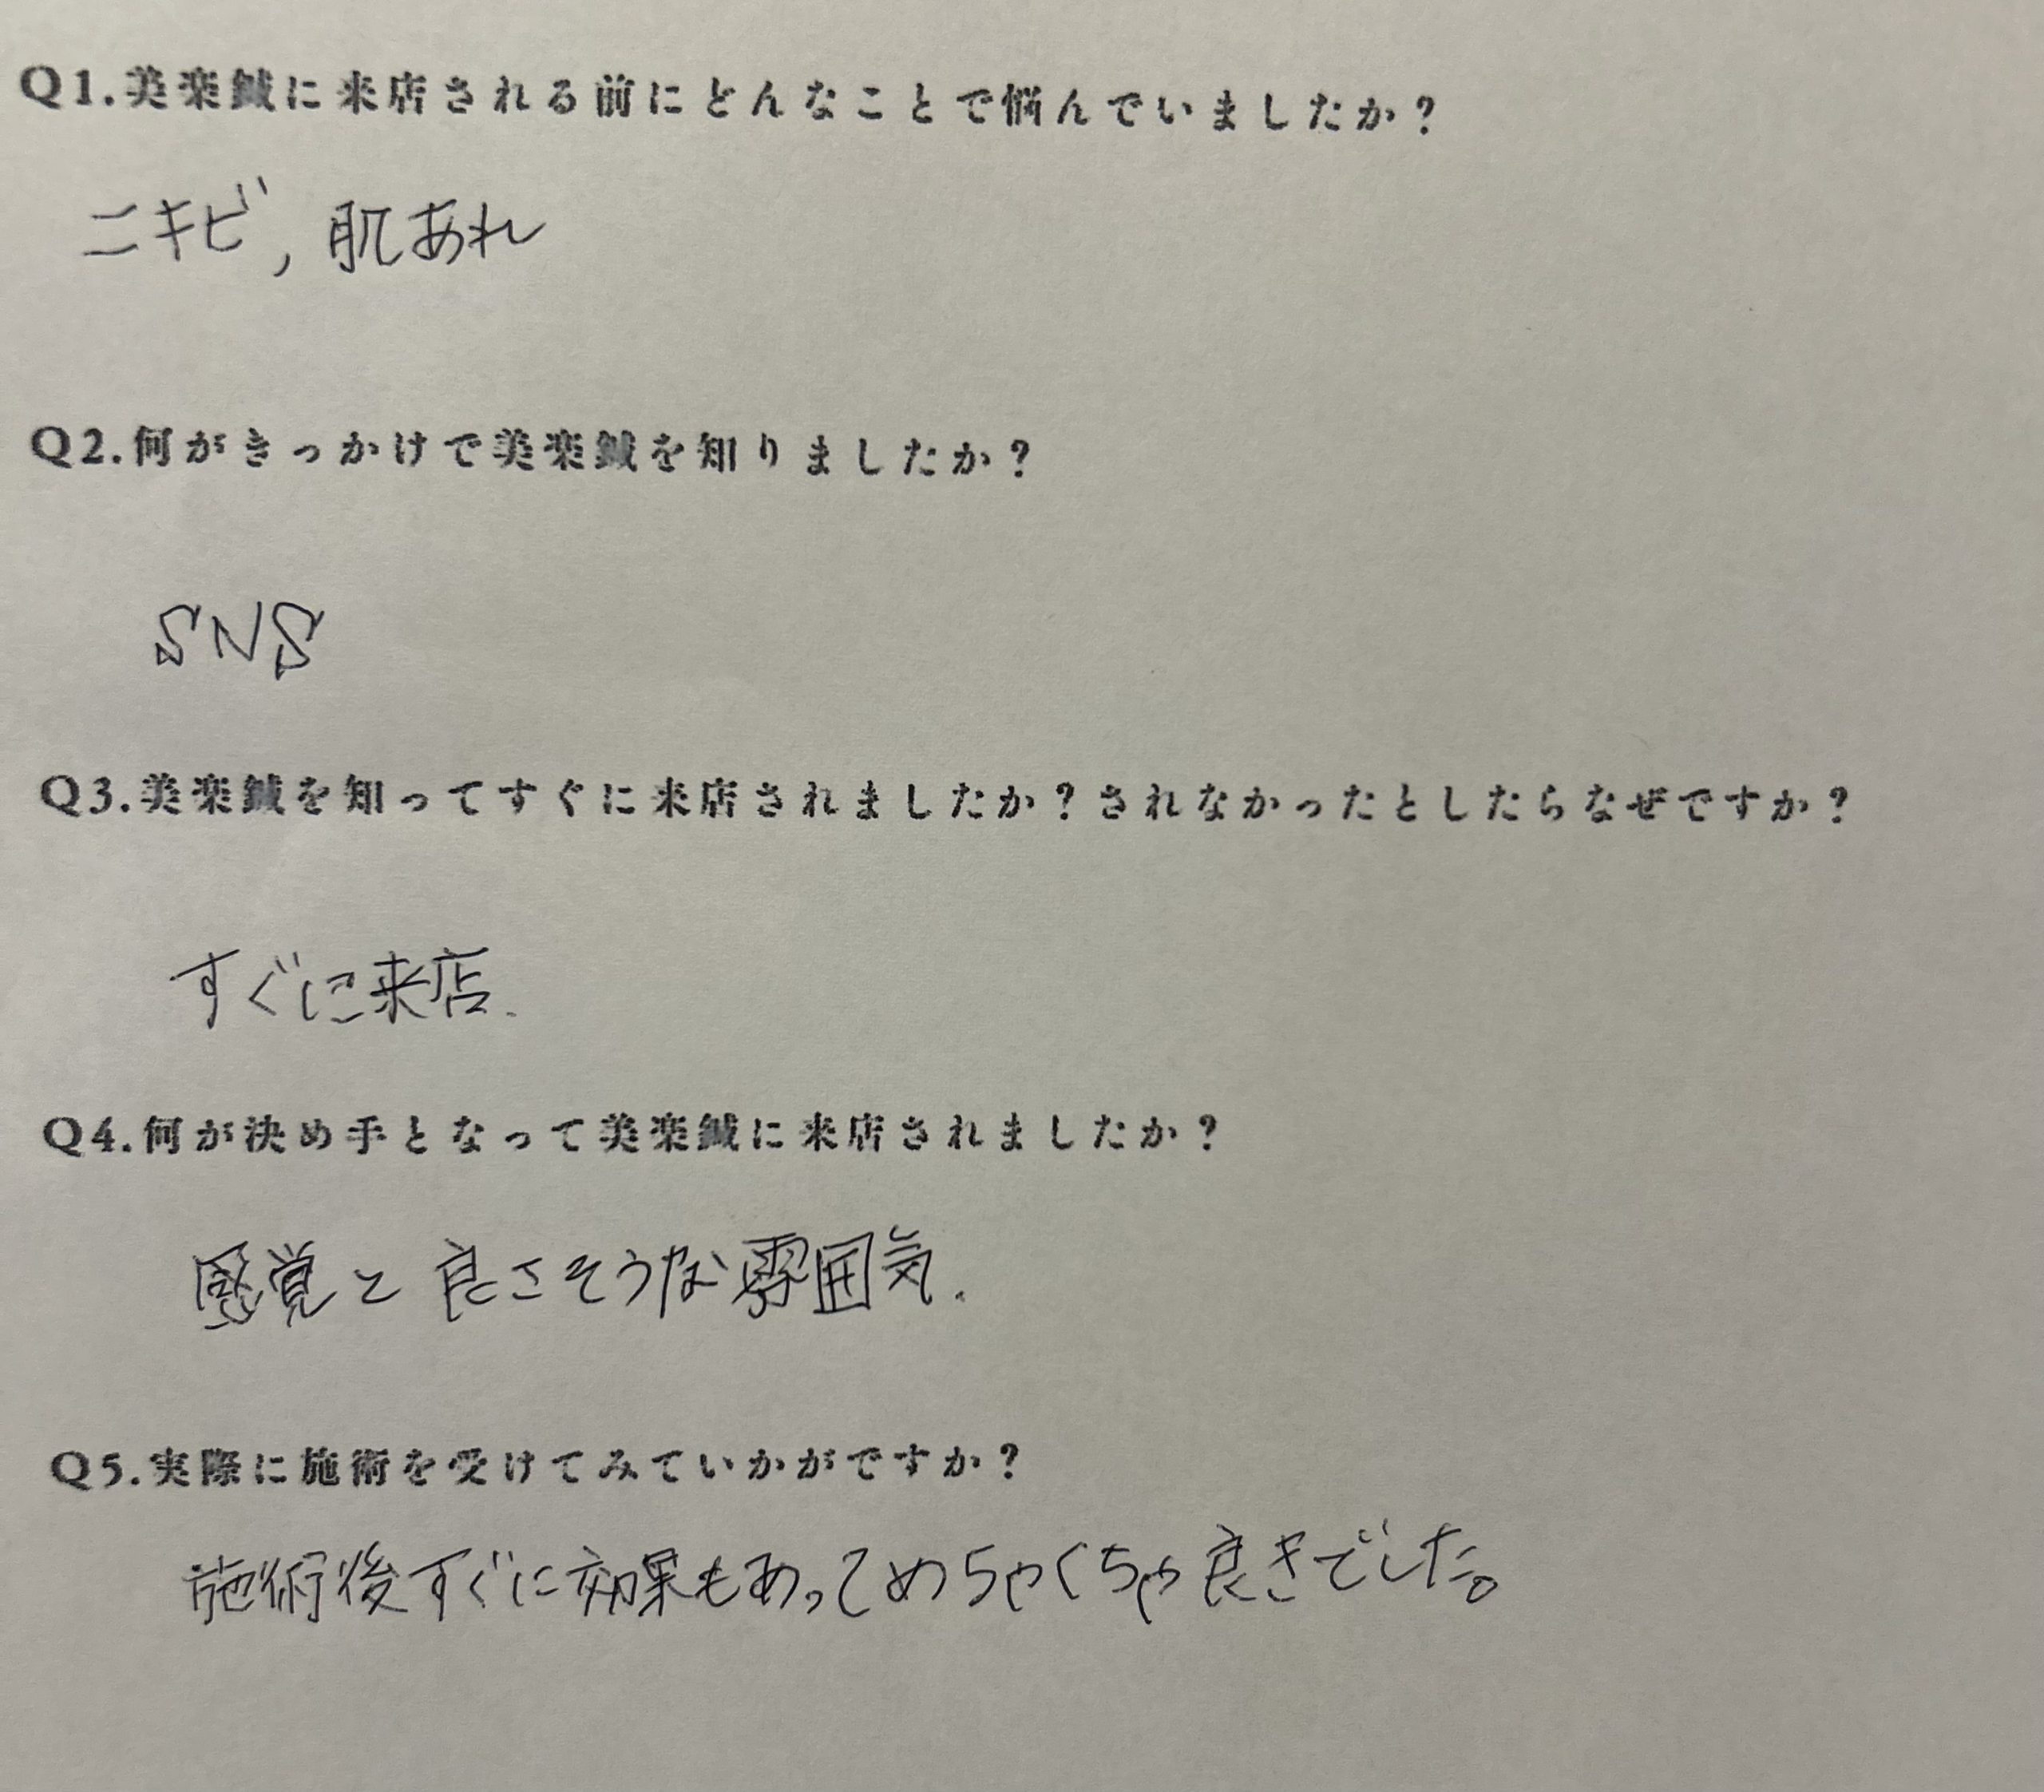 Q1.美楽鍼に来店される前にどんなことで悩んでいましたか?
ニキビ, 肌あれ
Q2.何がきっかけで美楽鍼を知りましたか?
SNS
Q3.美楽鍼を知ってすぐに来店されましたか?されなかったとしたらなぜですか?
すぐに来店.
Q4.何が決め手となって美楽鍼に来店されましたか?
感覚と良さそうな雰囲気.
Q5.実際に施術を受けてみていかがですか?
施術後すぐに効果もあってめちゃくちゃ良きでした。